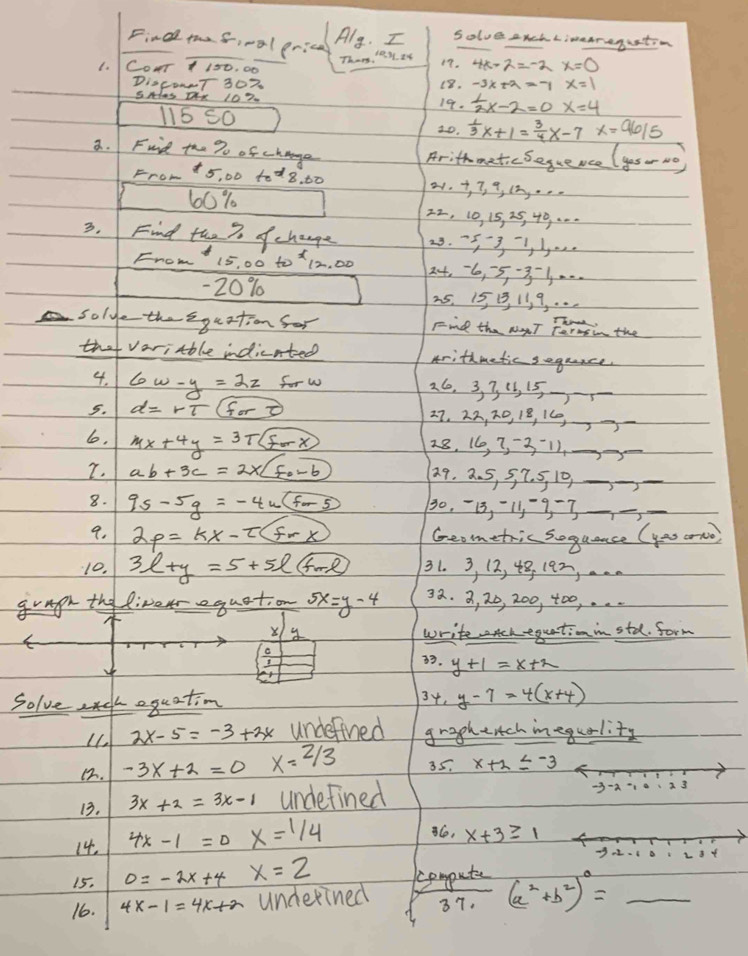 Find the final price
1. Cost $150.00
Discount 30%
Sales Tax 10%
115 50
2. Find the % of change
From $5.00 to $8.00
60%
3. Find the % of change
From $15.00 to $12.00
-20%
Solve the Equation for
the variable indicated
4. 6w - y = 2z for w
5. d = rT for T
6. mx + 4y = 3T for x
7. ab + 3c = 2x for b
8. 9s - 5g = -4u for s
9. 2p = kx - T for x
10. 3l + y = 5 + 5l for l
graph the linear equation 5x = y - 4
x y
0
Solve each equation
11. 2x - 5 = -3 + 2x undefined
12. -3x + 2 = 0 x = 2/3
13. 3x + 2 = 3x - 1 undefined
14. 4x - 1 = 0 x = 1/4
15. 0 = -2x + 4 x = 2
16. 4x - 1 = 4x + 2 undefined
Alg. I
Thurs. 10.31.24
Solve each Linear equation
17. 4x - 2 = -2 x = 0
18. -3x + 2 = -1 x = 1
19. 1/2x - 2 = 0 x = 4
20. 1/3x + 1 = 3/4x - 7 x = 96/5
Arithmetic Sequence (yes or no)
21. 4, 7, 9, 12, ...
22. 10, 15, 25, 40, ...
23. -5, -3, -1, 1, ...
24. -6, -5, -3, -1, ...
25. 15, 13, 11, 9, ...
Find the Next Three Terms in the
arithmetic sequence.
26. 3, 7, 11, 15, _, _, _
27. 22, 20, 18, 16, _, _, _
28. 16, 7, -2, -11, _, _, _
29. 2.5, 5, 7.5, 10, _, _, _
30. -13, -11, -9, -7, _, _, _
Geometric Sequence (yes or No)
31. 3, 12, 48, 192, ...
32. 2, 20, 200, 400, ...
Write each equation in std. form
33. y + 1 = x + 2
34. y - 7 = 4(x + 4)
graph each inequality
35. x + 2 ≤ -3
-3 -2 -1 0 1 2 3
36. x + 3 ≥ 1
-3 -2 -1 0 1 2 3 4
Compute
37. (a² + b²)⁰ = ___